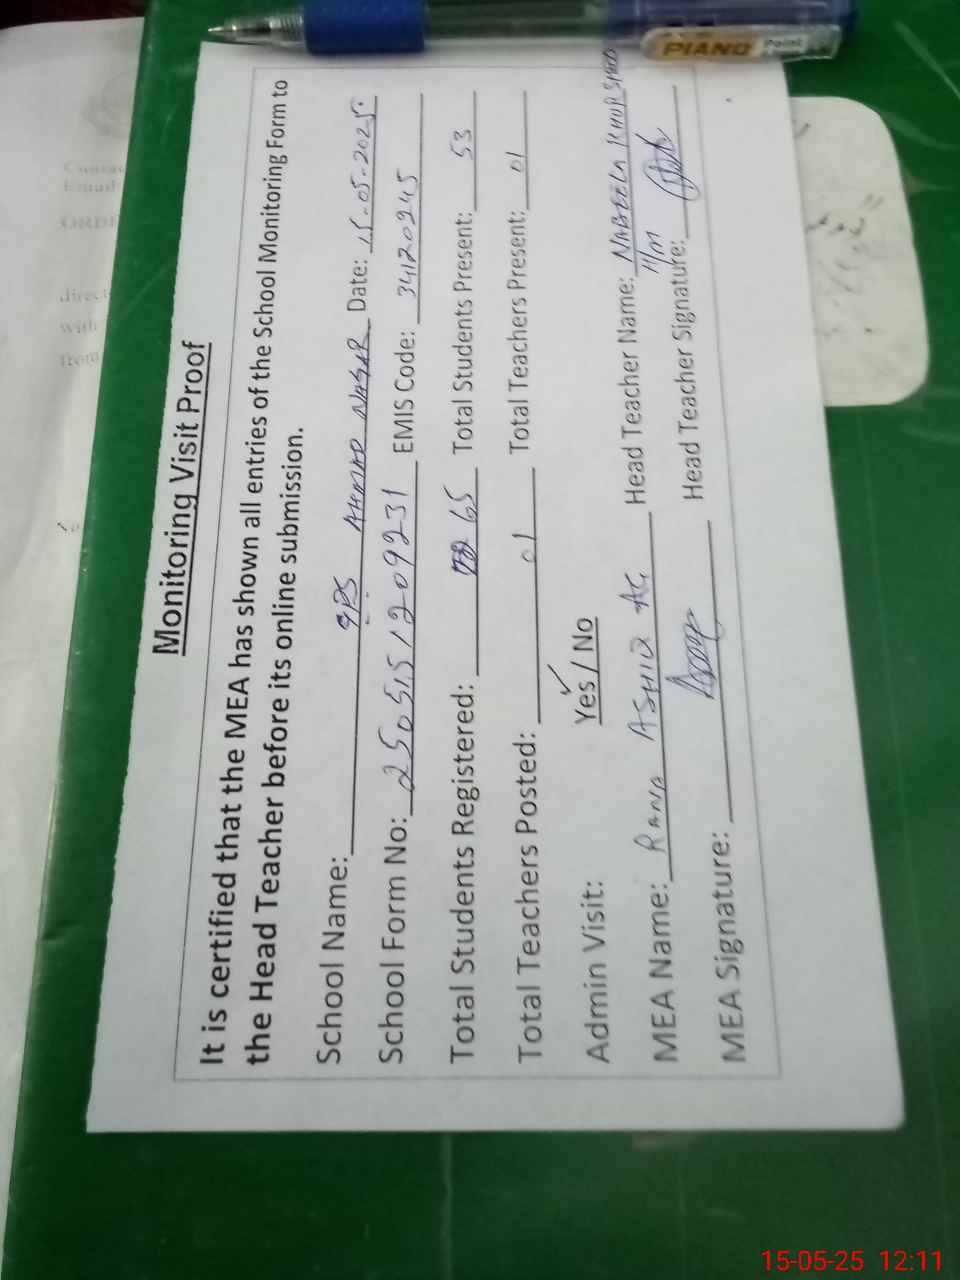 Monitoring Visit Proof
It is certified that the MEA has shown all entries of the School Monitoring Form to
the Head Teacher before its online submission.
School Name: GPS AHMAD NAGAR Date: 15-05-2025
School Form No: 2505151209231 EMIS Code: 34120245
Total Students Registered: 65 Total Students Present: 53
Total Teachers Posted: 01 Total Teachers Present: 01
Admin Visit: Yes / No
MEA Name: RANA ASHIQ Head Teacher Name: NABEELA KHURSHID
MEA Signature: Head Teacher Signature:
PIANO Point
15-05-25 12:11